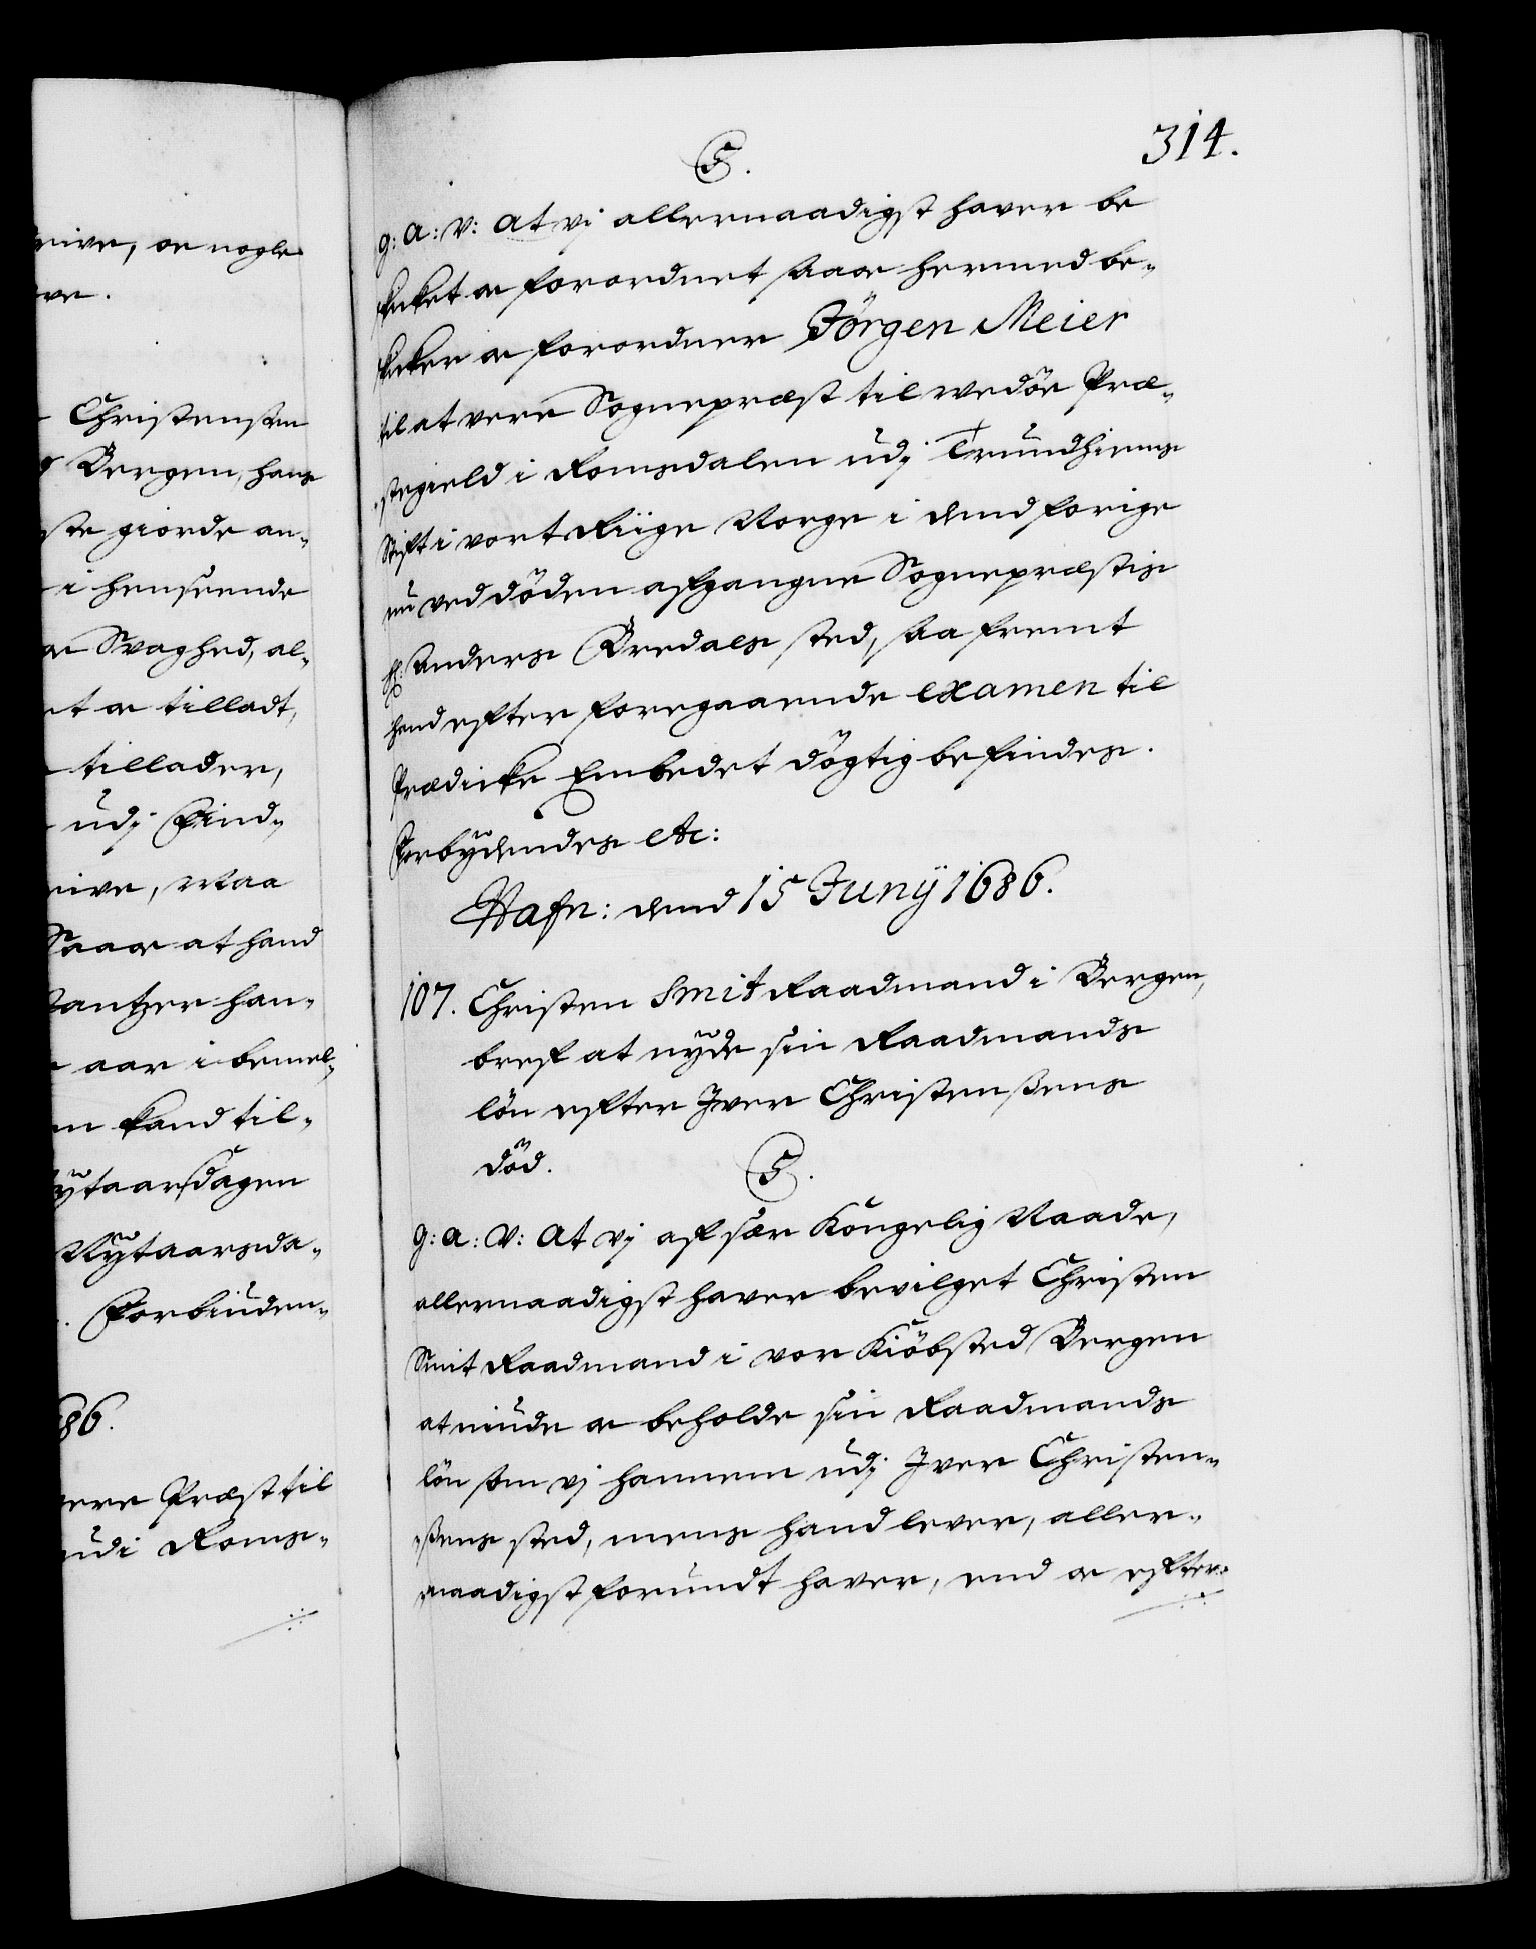 rive, oc nogle
ve.
Christensen
Bergen, hans
ste giorde an-
i henseende
oc Svaghed, al-
et oc tilladt,
tillader,
udj Find-
rive, maa
Saa oc at hand
Cantzer han-
aar i bemel-
kand til-
ytaarsdagen
Nÿtaarsda-
. Forbiuden-
86.
vere Præst til
udi Roms-
314.
C5.
g: a: v: at vj allernaadigst haver be
skicket oc forordnet saa oc hermed be-
skicker oc forordner Jörgen Meier
til at vere Sognepræst til Vedöe Præ-
stegield i Romsdalen udj Trundhiems
Stift i vort Riige Norge i dend forige
nu ved döden afgangne Sognepræstis
Hr: Anders Bredals sted, saa fremt
hand efter foregaaende examen til
Prædicke Embedet dögtig befindes.
Forbÿdendes etc:
Hafn: dend 15 Junÿ 1686.
107. Christen Smit Raadmand i Bergen,
bref at nÿde sin Raadmands
lön efter Iver Christenßens
död.
C5.
g: a: v: At vj af sær Kongelig Naade,
allernaadigst haver bevilget Christen
Smit Raadmand i vor Kiöbsted Bergen
at niude oc beholde sin Raadmands
lön som vj hannem udj Iver Christen-
ßens sted, mens hand lever, aller-
naadigst forundt haver, end oc efter